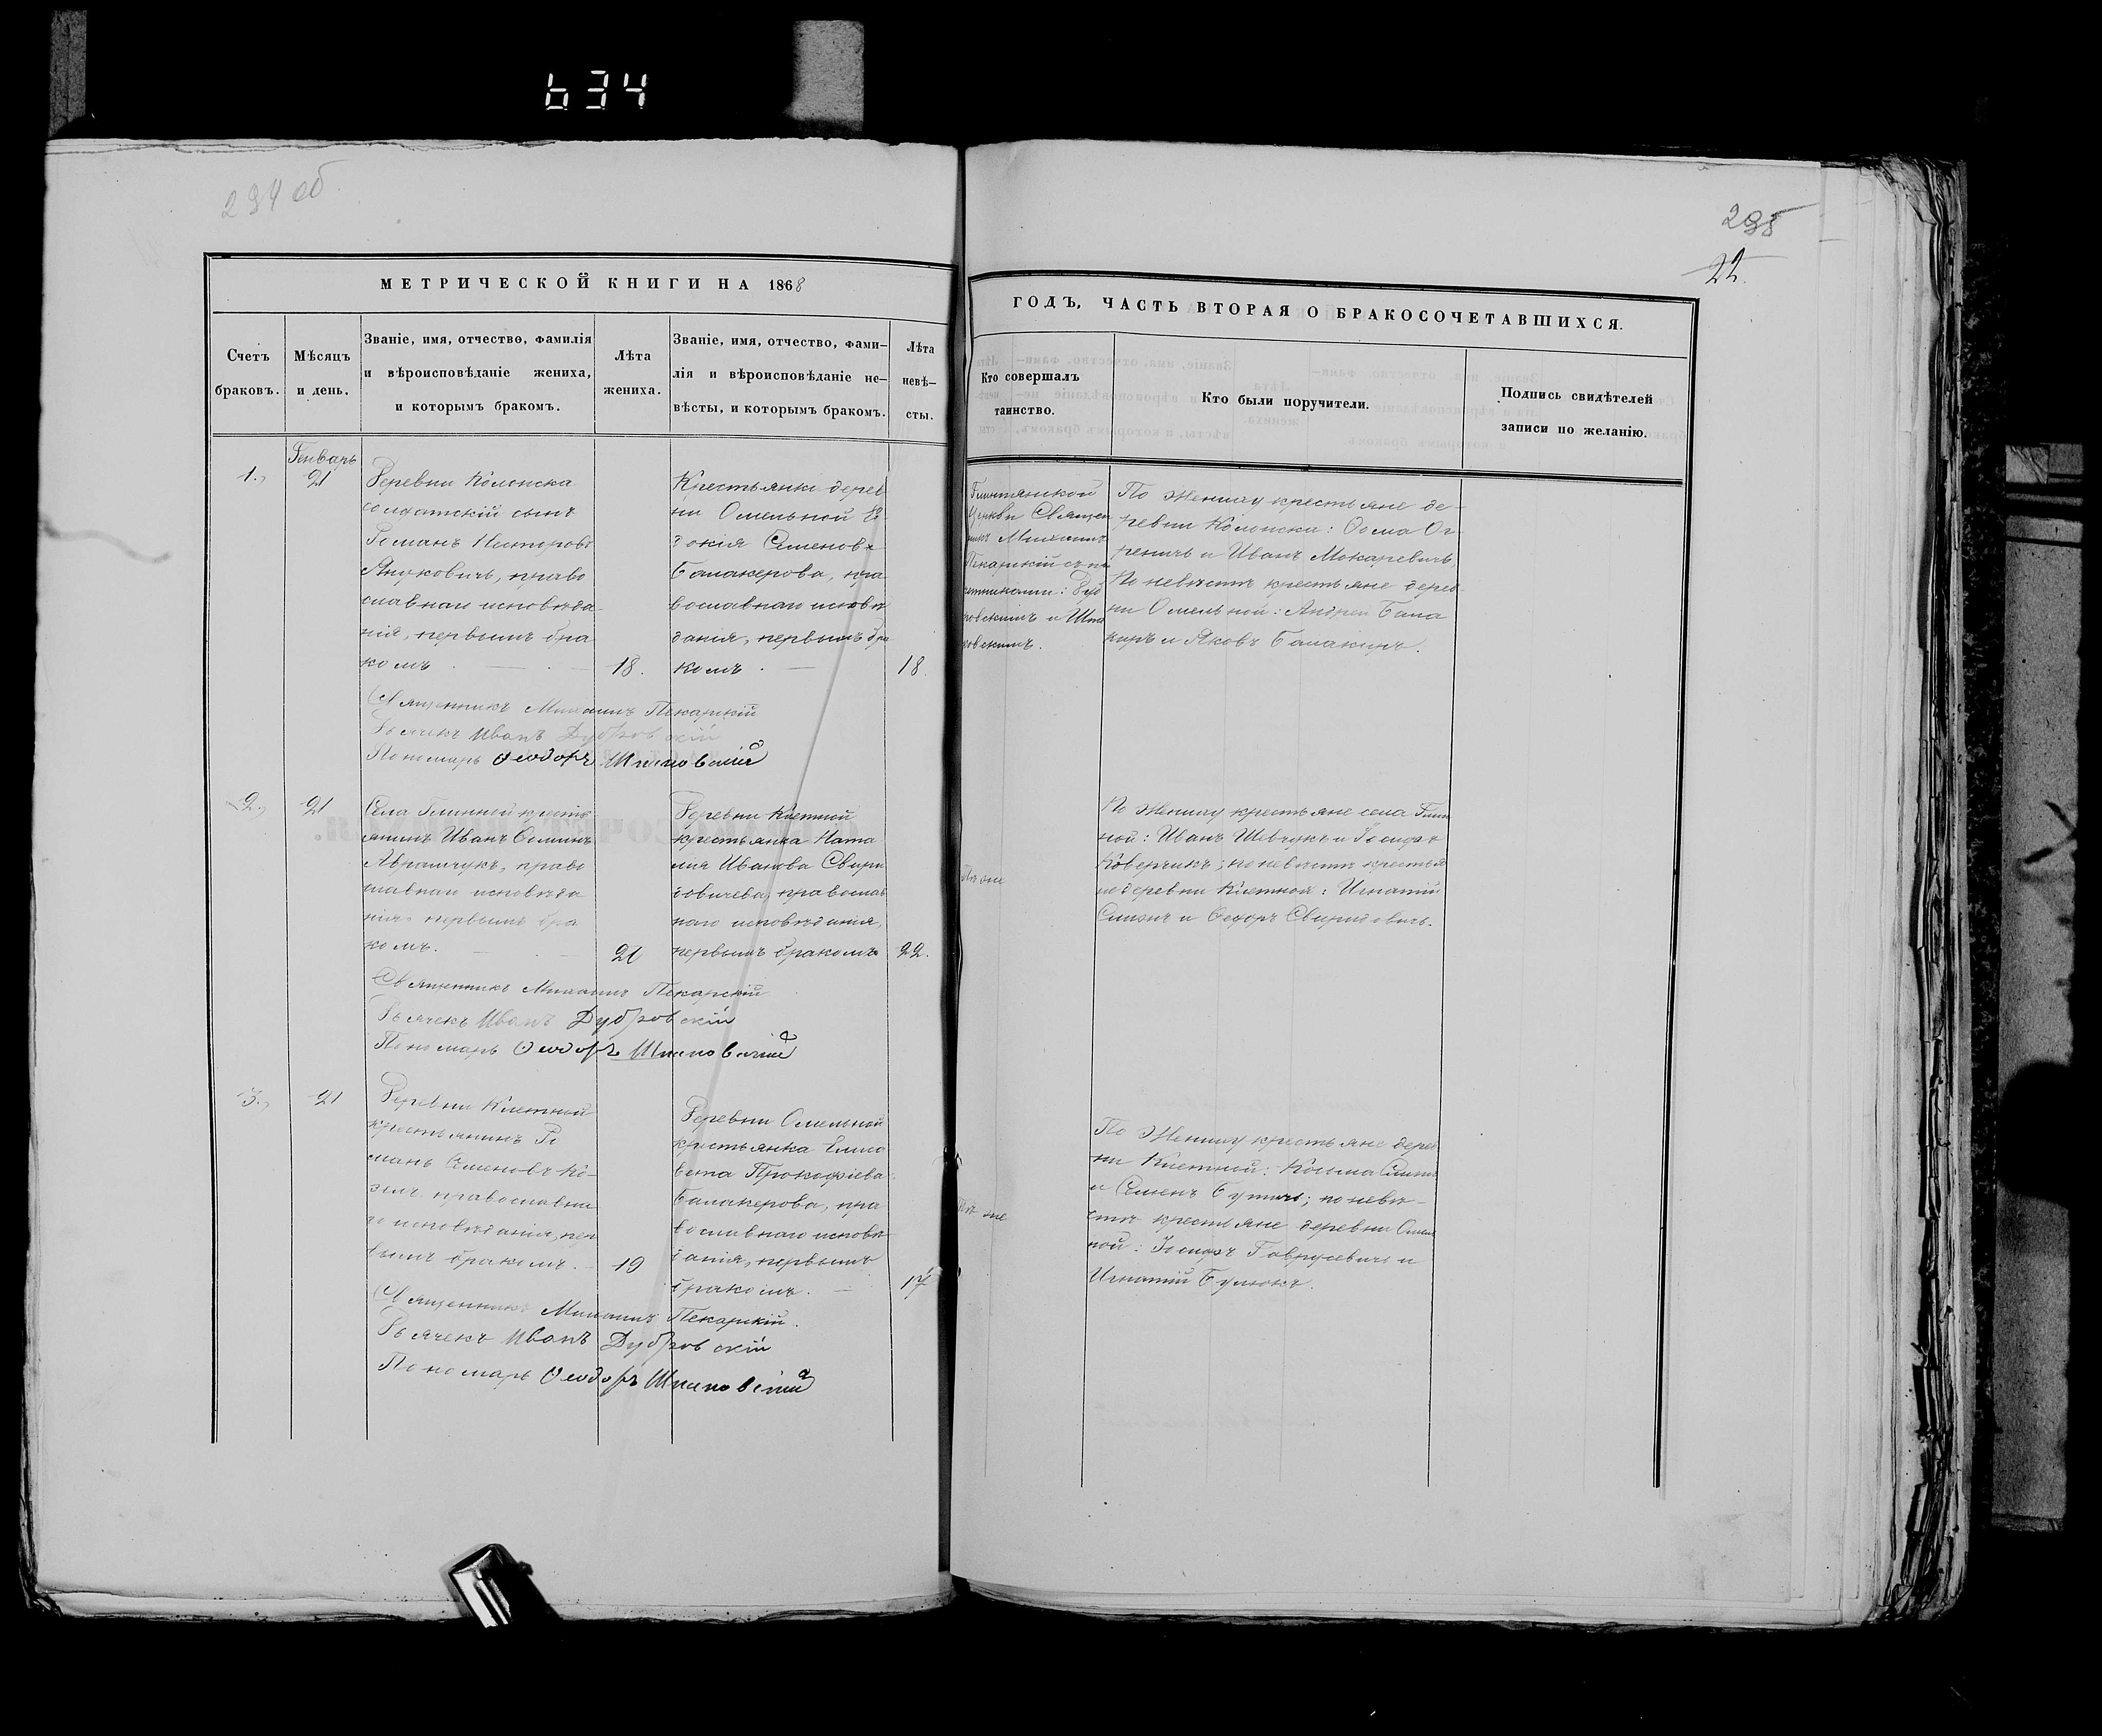 634
294 об
295
22.
МЕТРИЧЕСКОЙ КНИГИ НА 1868
Счетъ
браковъ.
Мѣсяцъ
и день.
Званіе, имя, отчество, фамилія
и вѣроисповѣданіе жениха,
и которымъ бракомъ.
Лѣта
жениха.
Званіе, имя, отчество, фами-
лія и вѣроисповѣданіе не-
вѣсты, и которымъ бракомъ.
Лѣта
невѣ-
сты.
1.,
Генварь
21
Деревни Колонска
солдатскій сынъ
Романъ
Януковичъ, право
славнаго исповѣда-
нія, первымъ бра
комъ.
18.
Крестьянка дерев
ни Омельной Ев
докія Семенова
Балакерова, пра
вославнаго исповѣ
данія, первымъ бра
комъ.
18.
Священникъ Михаилъ Пекарскій
Дьячекъ Иванъ Дубровскій
Пономарь Ѳеодоръ
2.,
21
Села Глинной кресть
янинъ Иванъ
Аврамчукъ, право
славнаго исповѣда
нія, первымъ бра
комъ.
21
Деревни Клетной
крестьянка Ната
лия Иванова Свири
довичева, православ
наго исповѣданія,
первымъ бракомъ
22.
Священникъ Михаилъ Пекарскій
Дьячекъ Иванъ Дубровскій
Пономарь Ѳеодоръ
3.,
21
Деревни Клетной
крестьянинъ Ро
манъ Семеновъ Ко-
зелъ, православна
го исповѣданія, пер
вымъ бракомъ.
19
Деревни Омельной
крестьянка Елиса
вета Прокофіева
Балакерова, пра
вославнаго исповѣ
данія, первымъ
бракомъ.
17
Священникъ Михаилъ Пекарскій.
Дьячекъ Иванъ Дубровскій
Пономарь Ѳеодоръ
ГОДЪ, ЧАСТЬ ВТОРАЯ О БРАКОСОЧЕТАВШИХСЯ.
Кто совершалъ
таинство.
Кто были поручители.
Подпись свидѣтелей
записи по желанію.
Церкви Священ
никъ Михаилъ
Пекарскій
По жениху крестьяне де-
ревни Колонска: Ѳома
и Иванъ Макаревичъ.
По невѣстѣ крестьяне дерев-
ни Омельной: Андрей Бала
киръ и Яковъ Балакиръ.
Тѣ же
По жениху крестьяне села Глин
ной: Иванъ Шевчукъ и Іосифъ
Коверчикъ; по невѣстѣ крестья
не деревни Клетной: Игнатій
и Ѳедоръ Свиридовичъ.
Тѣ же
По жениху крестьяне дерев
ни Клетной: Косьма
и Семенъ; по невѣ-
стѣ крестьяне деревни Омель
ной: Іосифъ Гаврусевичъ и
Игнатій